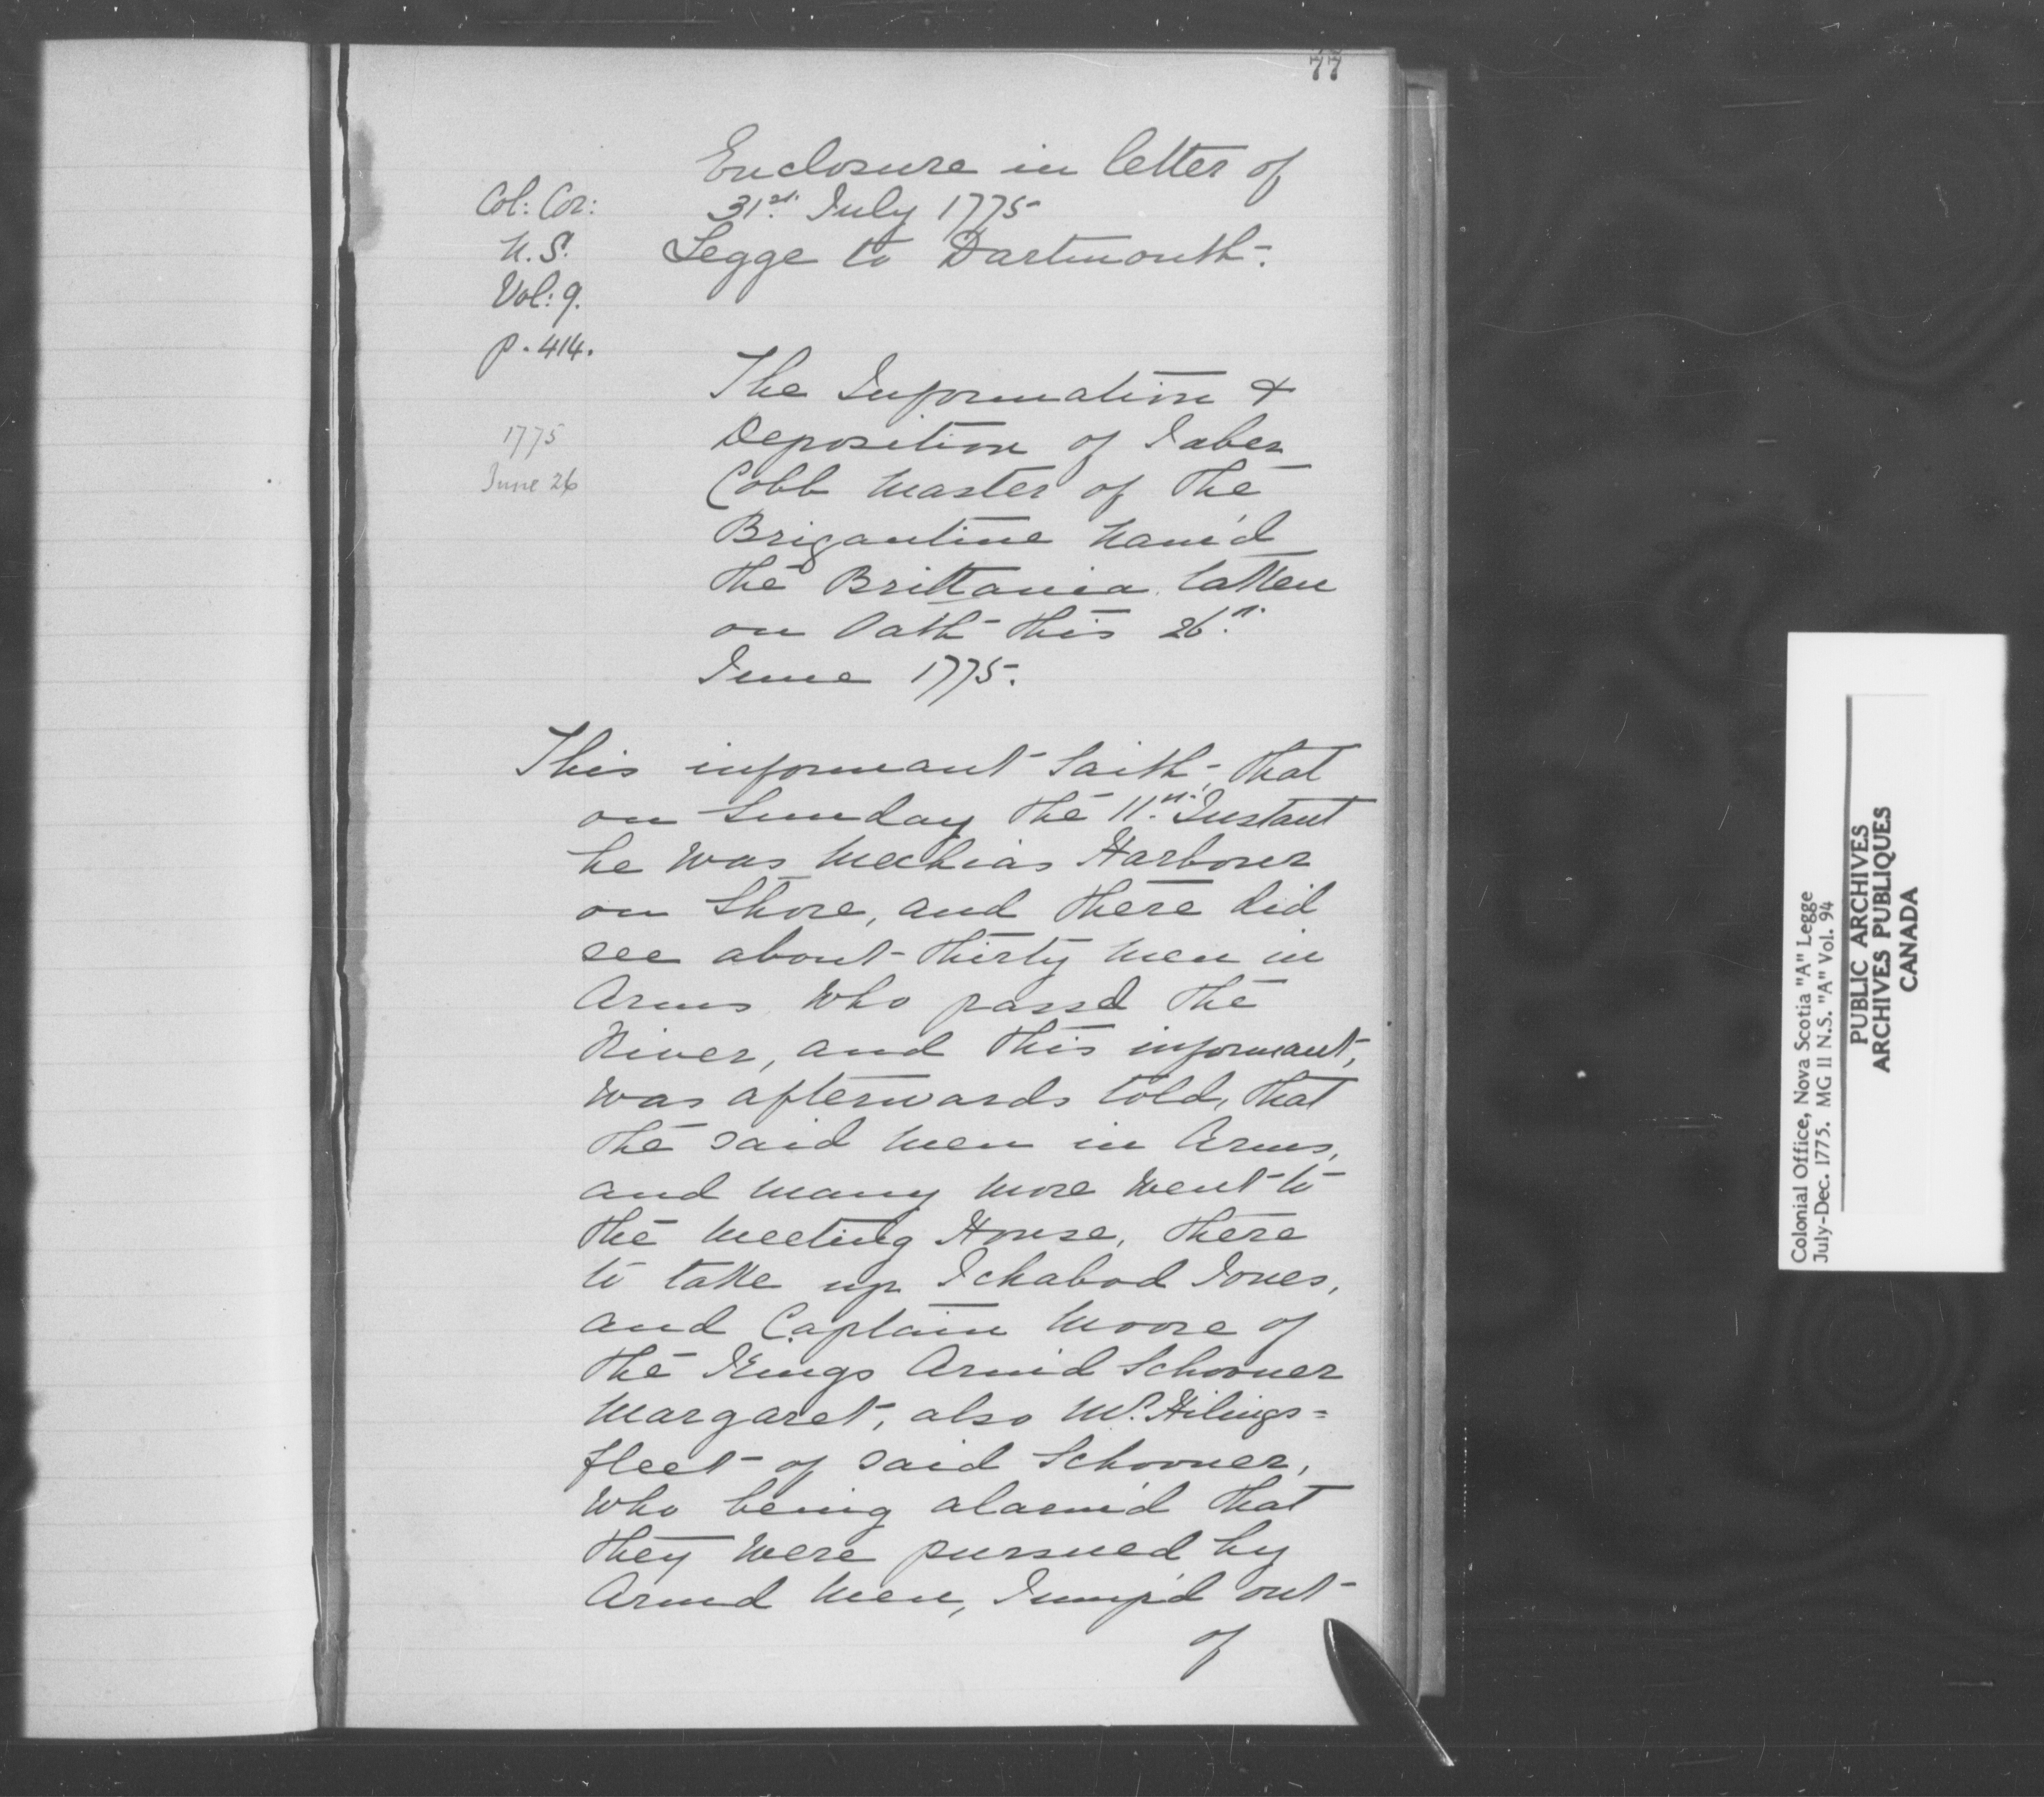 77
Enclosure in letter of
31st. July 1775
Legge to Dartmouth.
Col: Cor:
N.S.
Vol: 9.
p. 414.
1775
June 26
The Information &
Deposition of Jabez
Cobb Master of the
Brigantine Nam'd
the Brittania, taken
on Oath this 26th.
June 1775.
This informant Saith, that
on Sunday the 11th. Instant
he was Mechias Harbour
on Shore, and there did
see about thirty Men in
Arms, who passd the
River, and this informant,
was afterwards told, that
the said Men in Arms,
and many more went to
the Meeting House, there
to take up Ichabod Jones,
and Captain Moore of
the Kings Armd Schooner
Margaret, also Mr. Hilings=
fleet of said Schooner,
who being alarm'd that
they were pursued by
Armd Men, Jump'd out
of
Colonial Office, Nova Scotia "A" Legge
July-Dec. 1775. MG 11 N.S. "A" Vol. 94
PUBLIC ARCHIVES
ARCHIVES PUBLIQUES
CANADA